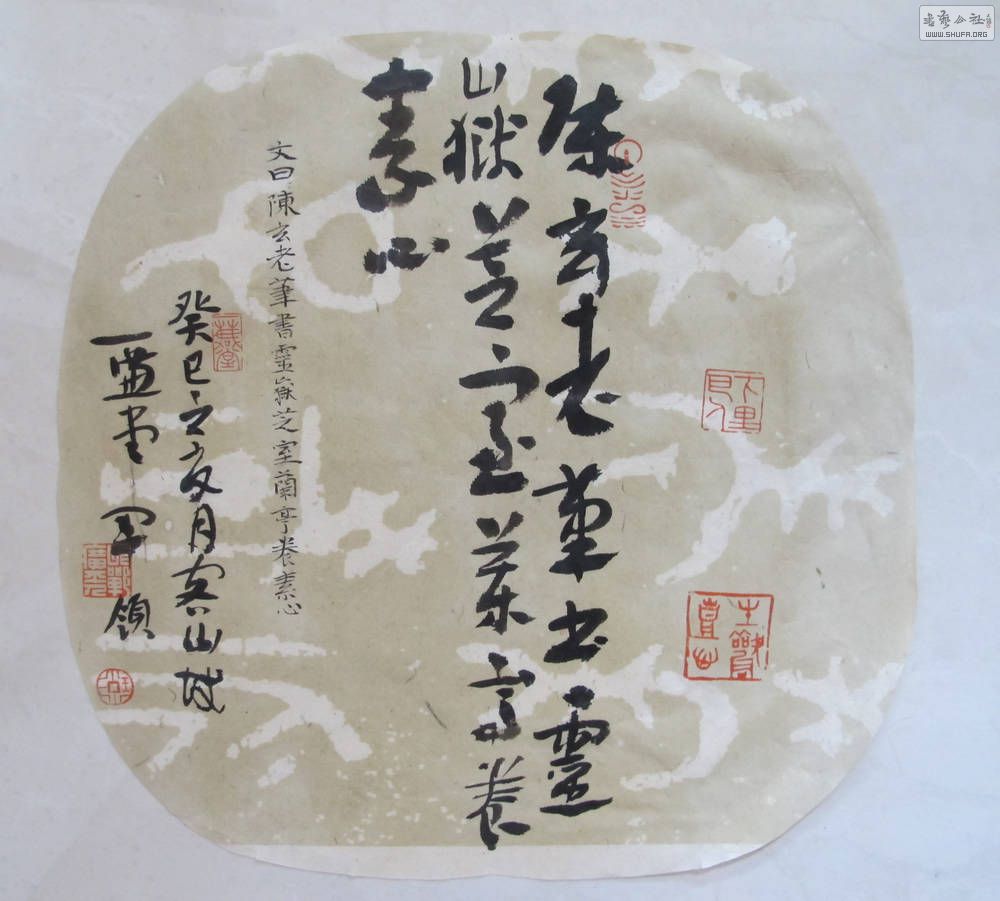 陳玄老筆書靈
嶽芝室蘭亭養
素心
文曰陳玄老筆書靈嶽芝室蘭亭養素心
癸巳之夏月客山城
一 堂 軍領
書藝公社
WWW.SHUFA.ORG